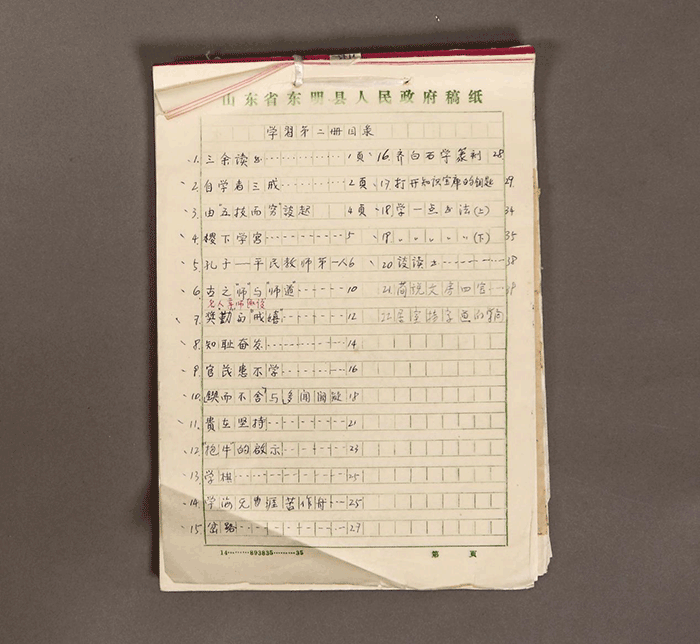 山东省东明县人民政府稿纸
学习第二册目录
1. 三余读书 1頁
2. 自学者三戒 2頁
3. 由"五技而穷"谈起 4頁
4. 稷下学宫 5
5. 孔子——平民教师第一人 6
6. 古之"师"与"师道" 10
7. 奖勤而"戒嬉" 12
8. 知耻奋发 14
9. 官民患不学 16
10. 锲而不舍"与多闻阙疑 18
11. 贵在坚持 21
12. "抱牛"的启示 23
13. 学棋 25
14. 学海无涯苦作舟 25
15. 岔路 27
16. 齐白石学篆刻 28
17 打开知识宝库的钥匙 29
18 学一点书法(上) 34
19. 〃 〃 〃 〃 〃 (下) 35
20 谈读书 38
21 简说文房四宝
14………893835………35
第 頁